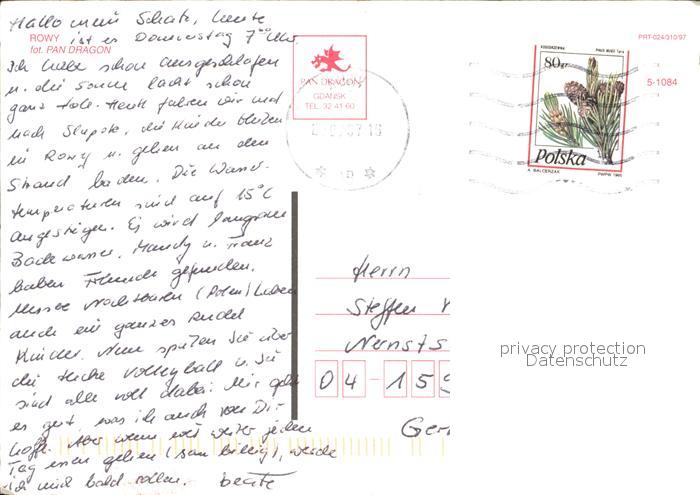 Hallo mein Schatz, heute
ist es Donnerstag 7⁰⁰ Uhr.
Ich habe schon ausgeschlafen
u. die Sonne lacht schon
ganz tole. Heute fahren wir mal
nach Slupsk, die Kinder bleiben
in Rowy u. gehen an den
Strand baden. Die Wasser-
temperaturen sind auf 15°C
angestiegen. Es wird langsam
Badewasser. Mandy u. Franz
haben Freunde gefunden.
Unsere Nachbarn (Polen) haben
auch ein ganzes Rudel
Kinder. Nun spielen sie über
die Hecke Volleyball u. sie
sind alle voll dabei. Mir geht
es gut, was ich auch von Dir
hoffe. Aber wenn wir weiter jeden
Tag essen gehen (sau billig), werde
ich mich bald rollen. Beate
ROWY
fot. PAN DRAGON
PAN DRAGON
GDAŃSK
TEL. 32 41 60
PRT-024/310/97
5-1084
80gr
Polska
A. BALCERZAK
PWPW 1995
Herrn
Steffen
0 4 - 1 5 9
Ger
privacy protection
Datenschutz